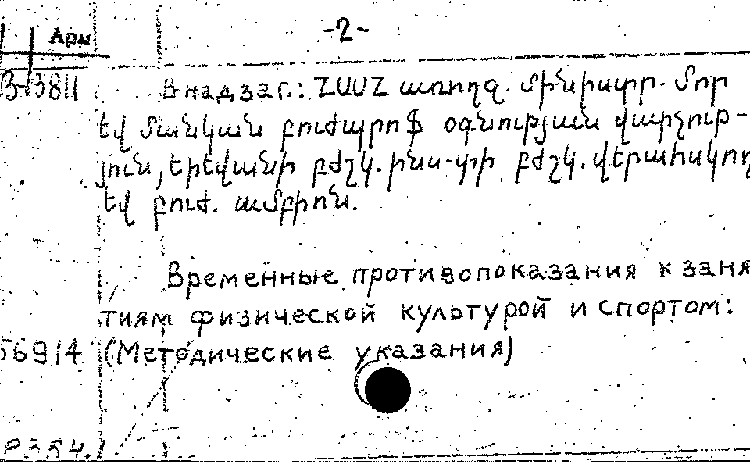 -2-
Арм
3-3811 В надзаг.: ՀՍՍՀ առողջ. մինիստր. Մոր
եվ մանկան բուժպրոֆ օգնության վարչութ-
յուն, Երեվանի բժշկ. ինս-տի բժշկ. վերահսկող
եվ բուժ. ամբիոն.
Временные противопоказания к заня
тиям физической культурой и спортом:
56914 (Методические указания)